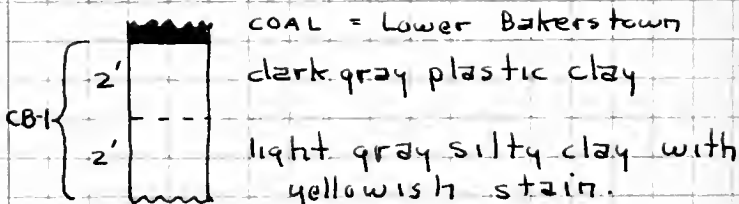 COAL = Lower Bakerstown
2' dark gray plastic clay
CB-1
2' light gray silty clay with
yellowish stain.